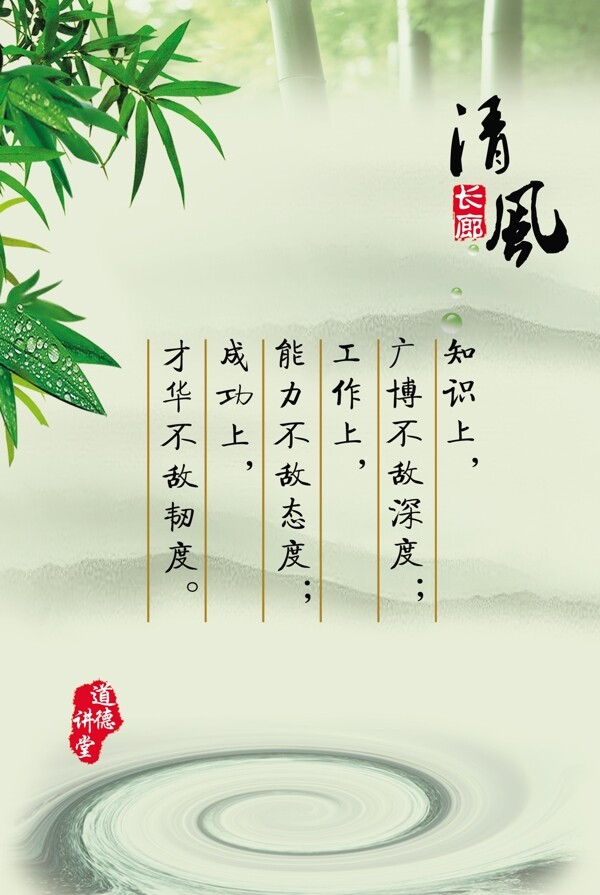 清風
长廊
知识上，
广博不敌深度；
工作上，
能力不敌态度；
成功上，
才华不敌韧度。
道德
讲堂